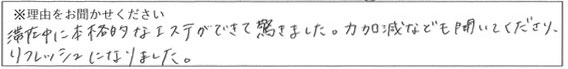 ※理由をお聞かせください
滞在中に本格的なエステができて驚きました。力加減なども聞いてくださり、
リフレッシュになりました。